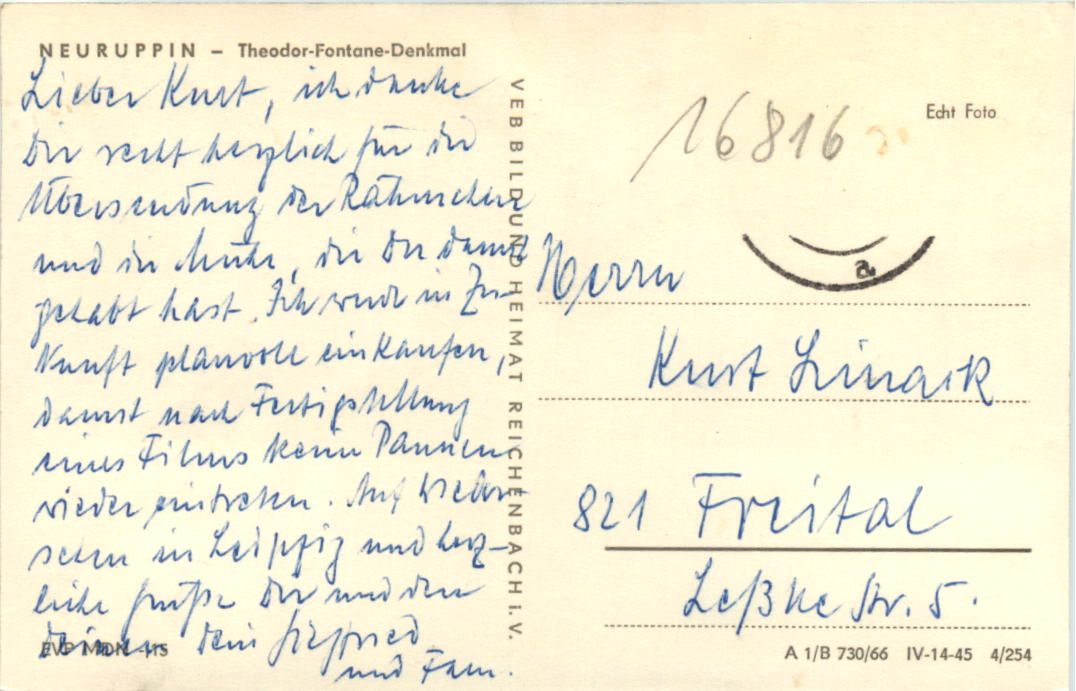 NEURUPPIN – Theodor-Fontane-Denkmal
Lieber Kurt, ich danke
Dir recht herzlich für die
Übersendung der Rähmchen
und die Mühe, die Du damit
gehabt hast. Ich werde in Zu-
kunft planvoll einkaufen,
damit nach Fertigstellung
eines Films keine Pannen
wieder eintreten. Auf Wieder-
sehen in Leipzig und herz-
liche Grüße Dir und den
Deinen Dein Siegfried
und Fam.
EVP MDN -.15
VEB BILD UND HEIMAT REICHENBACH i. V.
16816
Echt Foto
a
Herrn
Kurt Linack
821 Freital
Leßke Str. 5.
A 1/B 730/66 IV-14-45 4/254